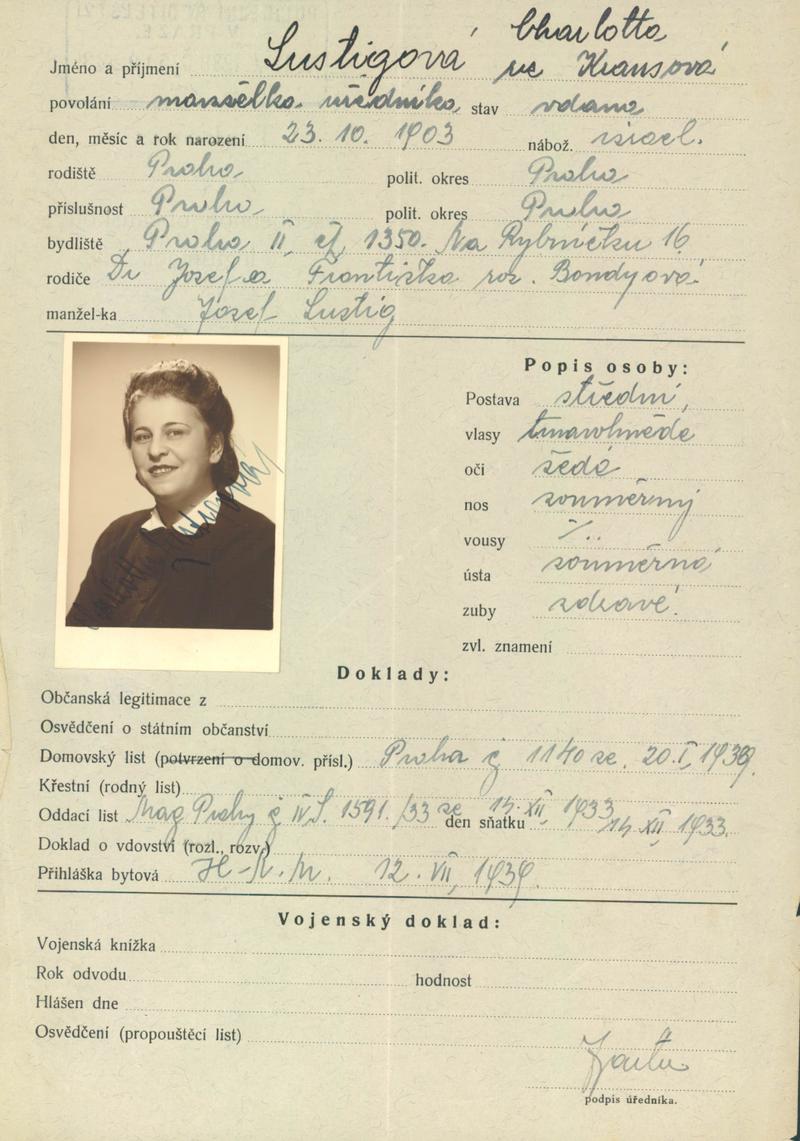 Charlotta
Jméno a příjmení Lustigová roz. Krausová
povolání manželka úředníka stav vdaná
den, měsíc a rok narození 23. 10. 1903 nábož. israel.
rodiště Praha polit. okres Praha
příslušnost Praha polit. okres Praha
bydliště Praha II, čp. 1350. Na Rybníčku 16
rodiče Dr Josef a Františka roz. Bondyová
manžel-ka Josef Lustig
Popis osoby:
Postava střední,
vlasy tmavohnědé
oči šedé
nos souměrný
vousy %..
ústa souměrná
zuby zdravé.
zvl. znamení
Doklady:
Občanská legitimace z
Osvědčení o státním občanství
Domovský list (potvrzení o domov. přísl.) Praha č 1140 ze 20.I.1939.
Křestní (rodný list)
Oddací list Mag Prahy č IV. S. 1591./33 ze 14. XII 1933 den sňatku 14 XII, 1933.
Doklad o vdovství (rozl., rozv.)
Přihláška bytová 12. VII, 1939.
Vojenský doklad:
Vojenská knížka
Rok odvodu hodnost
Hlášen dne
Osvědčení (propouštěcí list)
podpis úředníka.